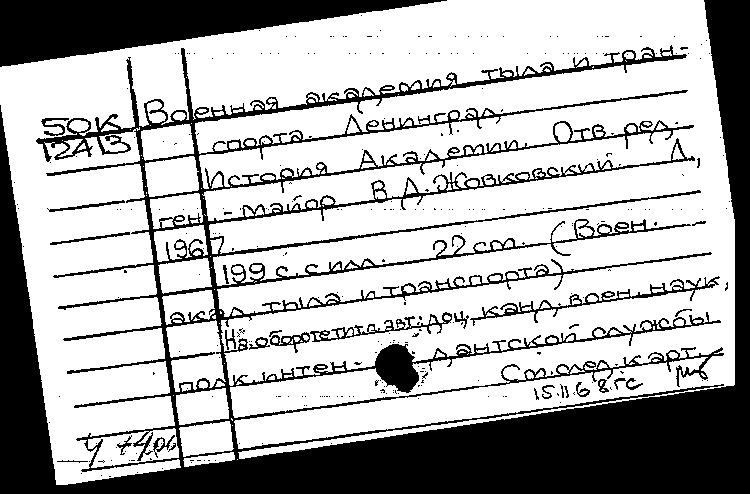 Военная академия тыла и тран-
50К
12413
спорта. Ленинград.
История Академии. Отв. ред.
ген.-майор В.Д. Жовковский. Л.,
1967.
199 с. с илл. 22 cm. (Воен.
акад. тыла и транспорта)
На обороте тит. л. авт.: доц., канд. воен. наук,
полк. интен-дантской службы
См. след. карт.
15.11.68 гс